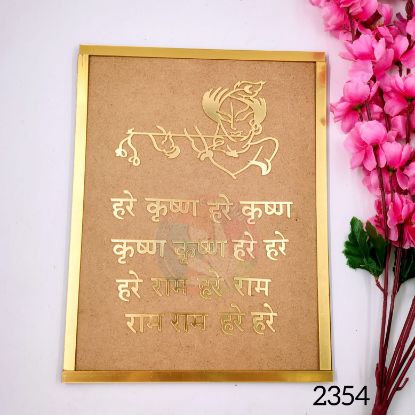 हरे कृष्ण हरे कृष्ण
कृष्ण कृष्ण हरे हरे
हरे राम हरे राम
राम राम हरे हरे
2354